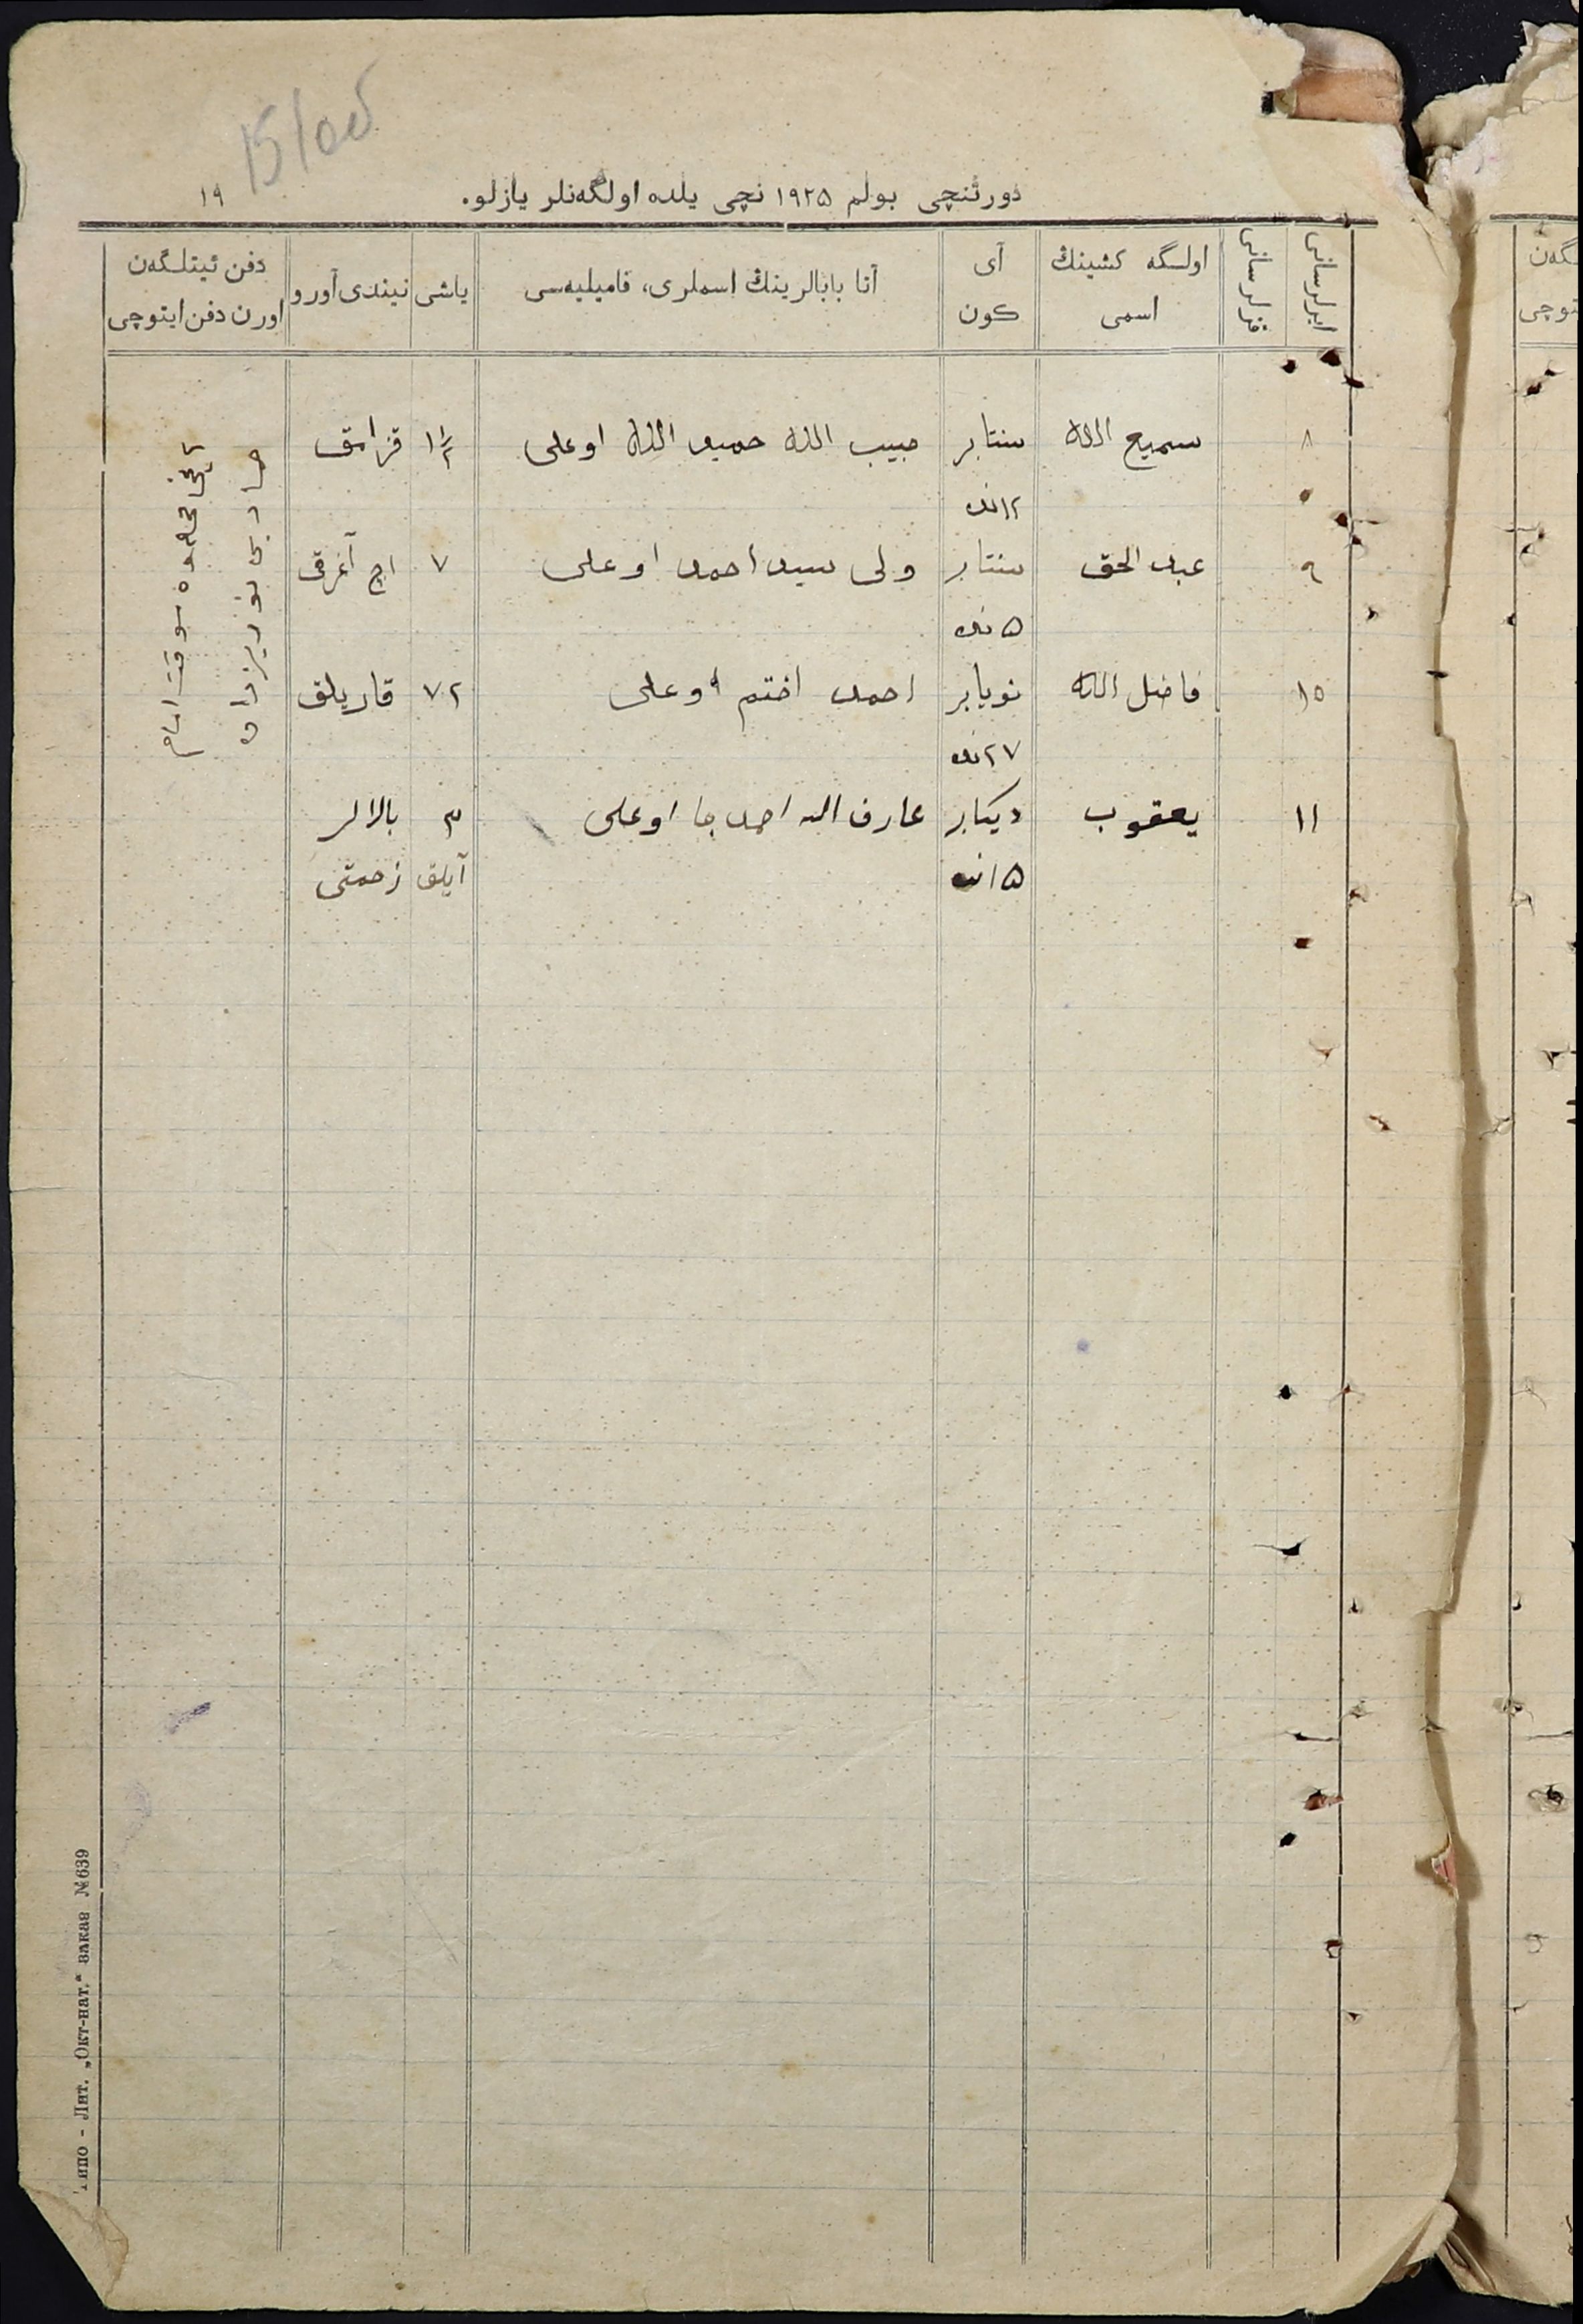 دورتنچی بولم ۱۹۲۵ نچی یلده اولگه‌نلر یازلو.
۱۹
ایرلر سانی
قزلر سانی
اولسگه کشینڭ
اسمی
آی
کون
آنا بابالرینڭ اسملری، فامیلیه‌سی
یاشی
نیندی آورو
دفن ئیتلگه‌ن
اورن دفن ایتوچی
۸ سمیع الله سنتابر حبیب الله حمید الله اوغلی ۱ ۱/۲ قزامق
۱۲نده
۹ عبد الحق سنتابر ولی سید احمد اوغلی ۷ اچ آغرقی
۵ نده
۱۰ فاضل الله نویابر احمد اختم اوغلی ۷۲ قاریلق
۲۷نده
۱۱ یعقوب دیکابر عارف الله احمد جا اوغلی ۳ بالالر
۱۵نده آیلق زحمتی
Типо - Лит. „Окт-нат.“ заказ №639